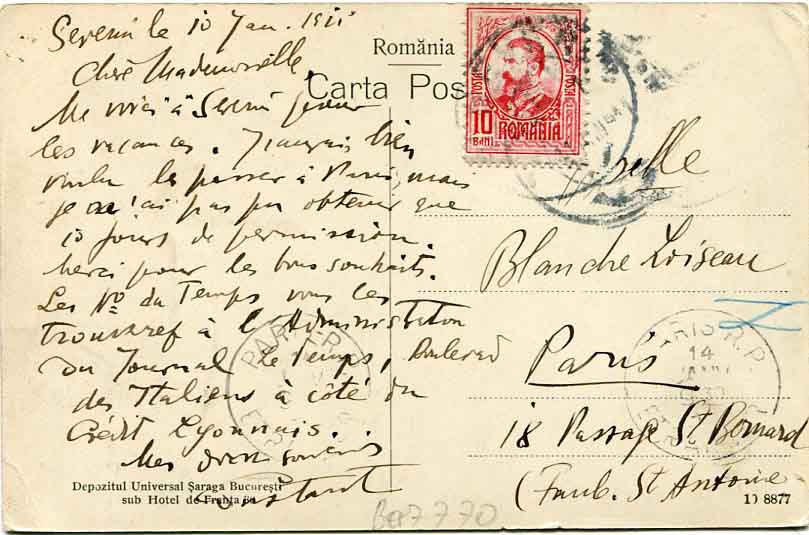 Severin le 10 Jan. 1911
Chère Mademoiselle,
Me voici à Severin pour
les vacances. J'aurais bien
voulu les passer à Paris, mais
je n'ai pas pu obtenir que
10 jours de permission.
Merci pour les bons souhaits.
Les No du Temps vous les
trouverez à l'Administration
du Journal le Temps, Boulevard
des Italiens à côté du
Crédit Lyonnais.
Mes souvenirs
Constant
România
Carta Pos
POSTA
POSTA
10
BANI
ROMANIA
Melle
Blanche Loiseau
Paris
18 Passage St Bernard
(Faub. St Antoine
PARIS R.P.
14
PARIS R.P.
Depozitul Universal Șaraga București
sub Hotel de Franța
19 8877